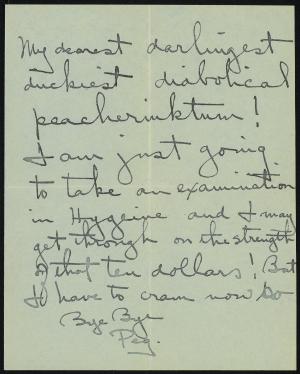 My dearest darlingest
duckiest diabolical
peacherinktum!
I am just going
to take an examination
in Hygeine and I may
get through on the strength
of that ten dollars! But
I'd have to cram now so
Bye Bye
Peg.